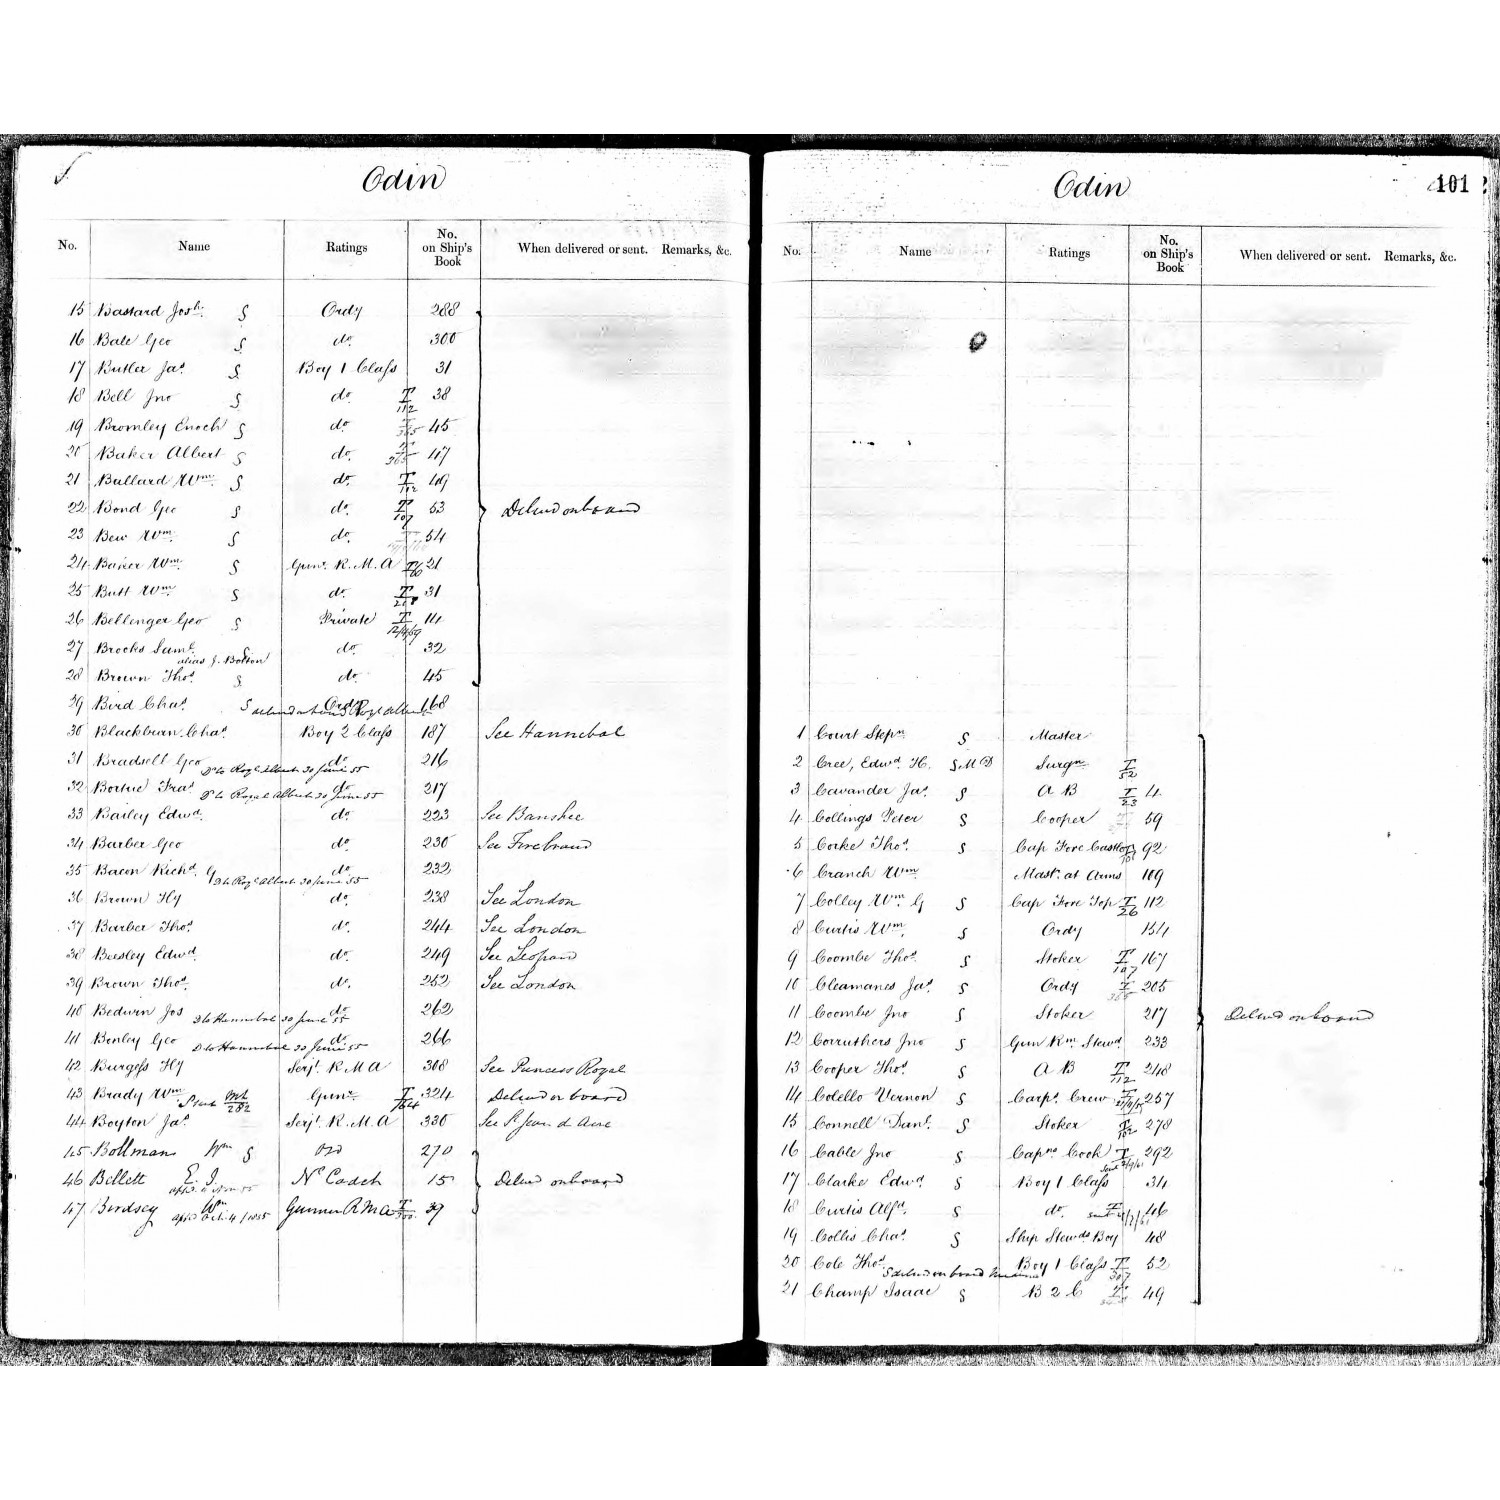 Odin
No. Name Ratings No. on Ship's Book When delivered or sent. Remarks, &c.
15 Bastard Josh. S Ordy 288
16 Bale Geo S do. 300
17 Butler Jas. S Boy 1 Class 31
18 Bell Jno S do. T/112 38
19 Bromley Enoch S do. T/365 45
20 Baker Albert S do. T/365 47
21 Bullard Wm. S do. T/112 49
22 Bond Geo S do. T/107 53 Delivd on board
23 Bew Wm. S do. 54
24 Baker Wm. S Gunr. R.M.A 21
25 Butt Wm. S do. 31
26 Bellenger Geo S Private T/12/4/59 14
27 Brooks Saml. S do. 32
alias J. Botton
28 Brown Thos. S do. 45
29 Bird Chas. S Ordy 168
30 Blackburn Chas. Boy 2 Class 187 See Hannibal
31 Bradsell Geo do 216
Ds to Royl Albert 30 June 55
32 Bortue Fras. do 217
Ds to Royal Albert 30 June 55
33 Bailey Edwd. do. 223 See Banshee
34 Barber Geo do. 230 See Firebrand
35 Bacon Richd. G do. 232
Ds to Royl Albert 30 June 55
36 Brown Hy do. 238 See London
37 Barber Thos. do. 244 See London
38 Beesley Edwd. do. 249 See Leopard
39 Brown Thos. do. 252 See London
40 Bedwin Jos do 262
Ds to Hannibal 30 June 55
41 Benley Geo do. 266
Ds to Hannibal 30 June 55
42 Burgess Hy Serjt. R.M.A 308 See Princess Royal
43 Brady Wm Gunr. T/164 324 Delivd on board
44 Boyton Jas. Serjt. R.M.A 330 See St Jean d'Acre
45 Bollman Wm S Ord 270
46 Billett E. J. Nl Cadet 15 Delivd on board
47 Birdsey Wm Gunner RMA T/300 39
appd Oct. 4/1855
Odin
101
No. Name Ratings No. on Ship's Book When delivered or sent. Remarks, &c.
1 Court Stepn S Master
2 Cree, Edwd. H. S M D Surgn. T/52
3 Cavander Jas. S A B T/23 4
4 Collings Peter S Cooper 59
5 Corke Thos. S Cap Fore Castle 92
6 Cranch Wm Mast. at Arms 109
7 Colley Wm. G S Cap Fore Top T/26 112
8 Curtis Wm. S Ordy 154
9 Coombe Thos. S Stoker T/107 167
10 Cleamanes Jas. S Ordy T/365 205
11 Coombe Jno S Stoker 217 Delivd on board
12 Corruthers Jno S Gun Rm. Stewd. 233
13 Cooper Thos. S A B T/112 248
14 Colello Vernon S Carps. Crew 257
15 Connell Danl. S Stoker T/102 278
16 Cable Jno S Capns. Cook 292
17 Clarke Edwd. S Boy 1 Class 34
18 Curtis Alfd. S do. 46
19 Collis Chas. S Ship Stewds Boy 48
20 Cole Thos. Boy 1 Class T/307 52
S delivd on board
21 Champ Isaac S B 2 C 49